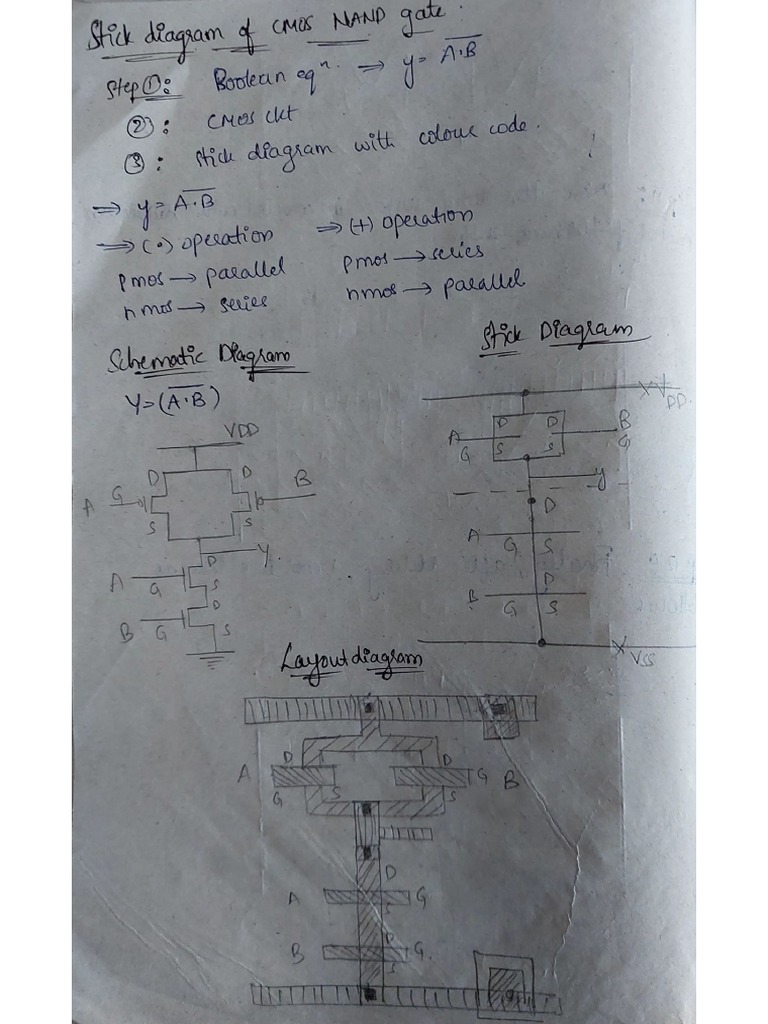 Stick diagram of CMOS NAND gate.
Step ①: Boolean eqⁿ. ⇒ y = \overline{A·B}
②: CMOS ckt
③: Stick diagram with colour code.
⇒ y = \overline{A·B}
⇒ (•) operation ⇒ (+) operation
pmos → parallel pmos → series
nmos → series nmos → parallel
Schematic Diagram Stick Diagram
Y = (\overline{A·B})
VDD
VDD.
A G D D B
S S
Y.
A G D S
B G D S
A G D D B G
S S
y
D
A G S
D
B G S
VSS
Layout diagram
A D D G B
G S S
D
A S G
D
B S G.